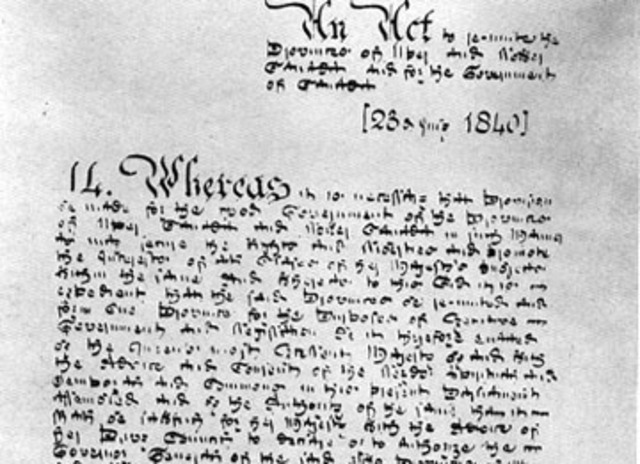 An Act to re-unite the
Provinces of Upper and Lower
Canada and for the Government
of Canada
[23d July 1840]
14. Whereas it is necessary that Provision
be made for the good Government of the Provinces
of Upper Canada and Lower Canada in such Manner
as may secure the Rights and Liberties and promote
the Interests of all Classes of Her Majesty's Subjects
within the same And whereas to this End it is
expedient that the said Provinces be re-united and
form One Province for the Purposes of Executive
Government and Legislation Be it therefore enacted
by the Queen's most Excellent Majesty by and with
the Advice and Consent of the Lords Spiritual and
Temporal and Commons in this present Parliament
Assembled and by the Authority of the same that it
shall be lawful for Her Majesty with the Advice of
Her Privy Council to declare or to Authorize the
Governor General of the said